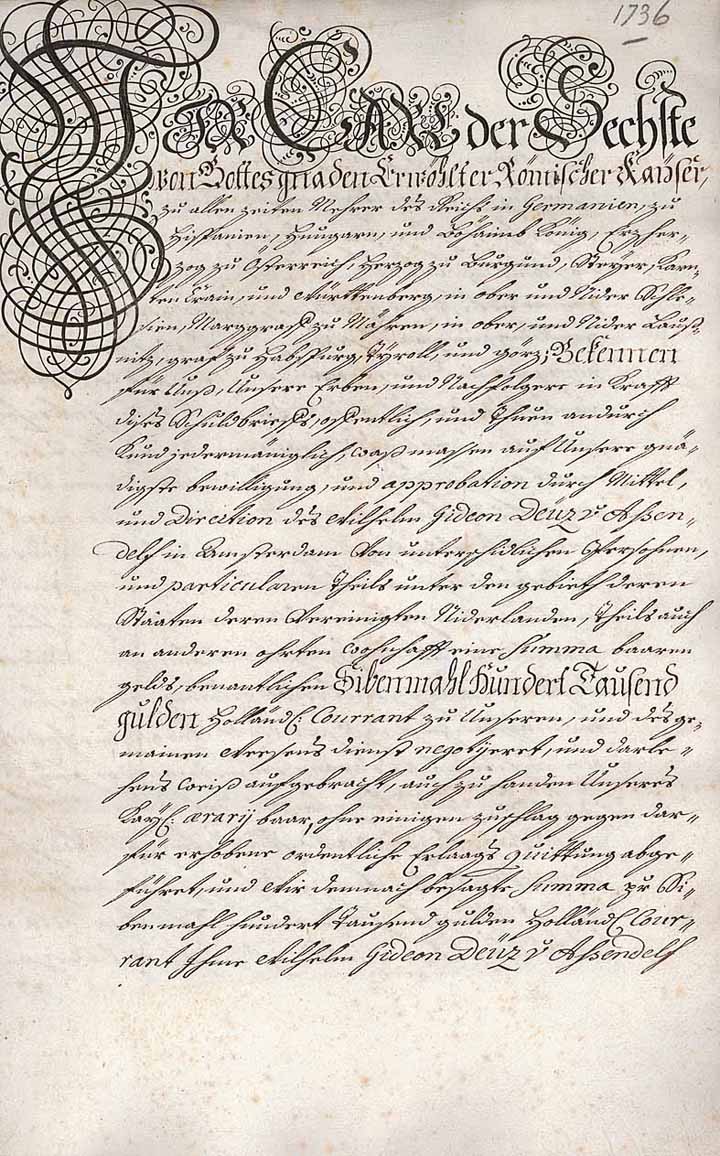 1736
WIR CARL der Sechste
von Gottes gnaden Erwöhlter Römischer Kaÿser,
zu allen zeiten Mehrer des Reichs in Germanien, zu
Hispanien, Hungarn, und Böhaimb König, Erzher-
zog zu Österreich, Herzog zu Burgund, Steyer, Kärn-
ten, Crain, und Württenberg, in ober und Nider Schle-
sien, Marggraff zu Mähren, in ober, und Nider Lauß-
nitz, graf zu Habspurg, Tyroll, und görz; Bekennen
für Unß, Unsere Erben, und Nachfolgere in Krafft
dises Schuldbrieffs, offentlich, und Thuen andurch
Kund jedermäniglich, waß massen auf Unsere gnä-
digste bewilligung, und approbation durch Mittel,
und Direction des Wilhelm Gideon Deüz v Assen-
delff in Amsterdam von unterschidlichen Persohnen,
und particularen Theils unter den gebieth deren
Stäaten deren Vereinigten Niderlanden, Theils auch
an anderen ohrten wohnhafft eine Summa baaren
gelds, benantlichen Sibenmahl Hundert Tausend
gulden Holländ: Courrant zu Unseren, und des ge-
mainen Weesens dienst negotijeret, und darle-
hens weiß aufgebracht, auch zu handen Unseres
Kayl: ærarij baar, ohne einigen zuschlag gegen dar-
für erhobene ordentliche Erlaags Quittung abge-
führet, und Wir demnach besagte Summa pr Si-
benmahl hundert Tausend gulden Holländ: Cour-
rant Ihme Wilhelm Gideon Deüz v Assendelff